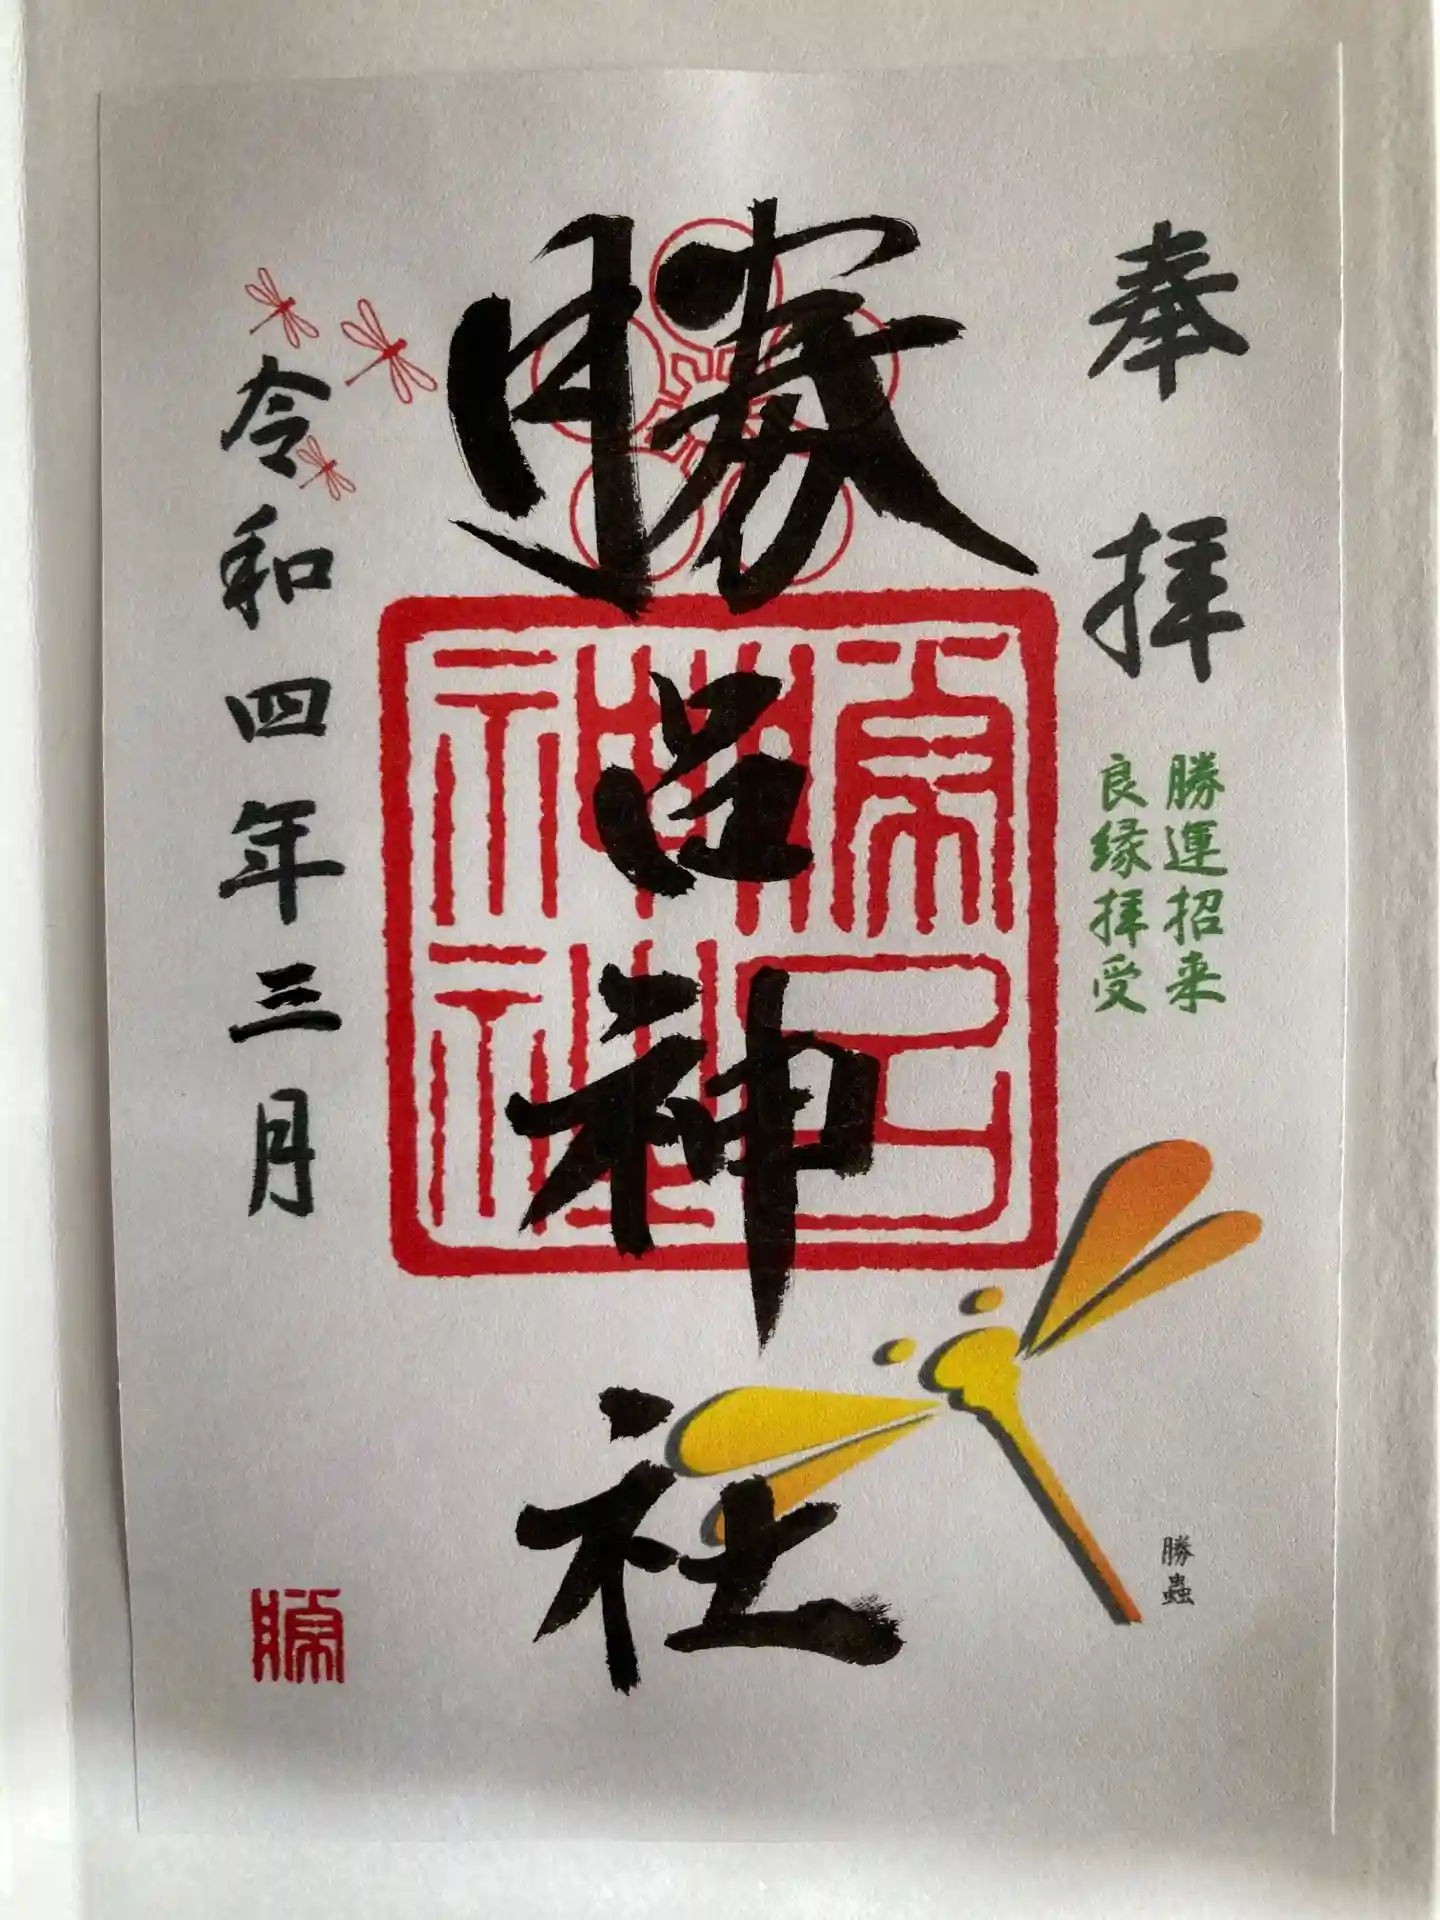 奉拝
勝運招来
良縁拝受
勝蟲
勝呂神社
勝呂
神社
令和四年三月
勝